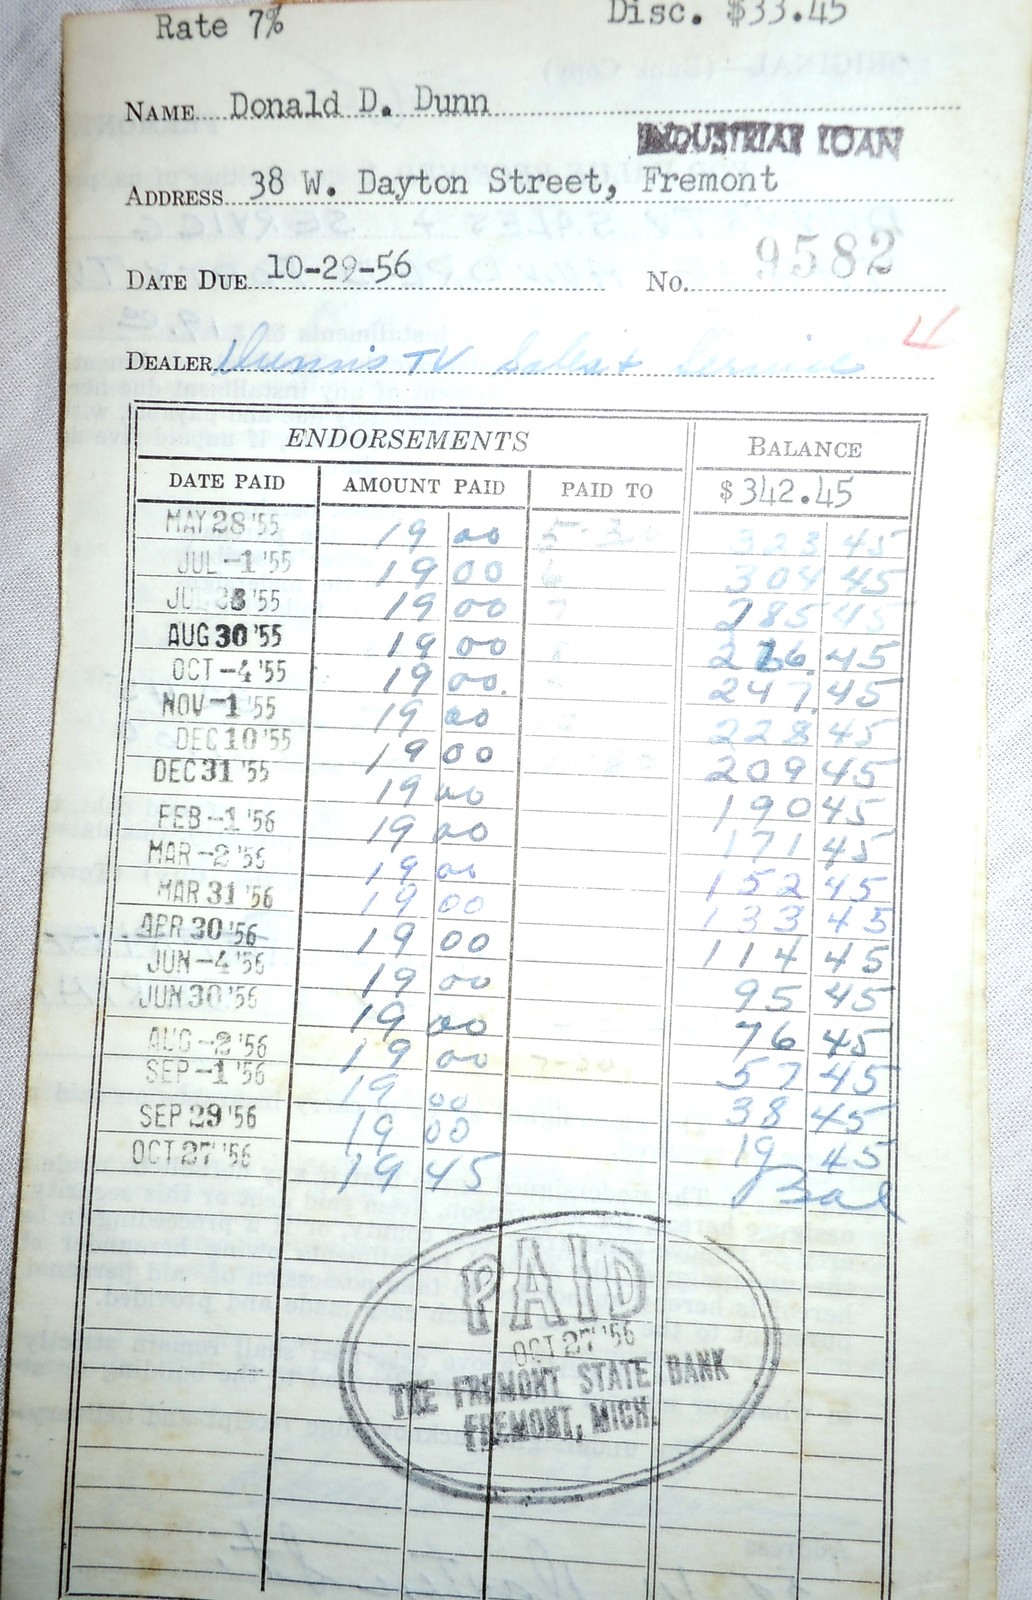 Rate 7% Disc. $33.45
NAME Donald D. Dunn
INDUSTRIAL LOAN
ADDRESS 38 W. Dayton Street, Fremont
DATE DUE 10-29-56 No. 9582
4
DEALER Dunn's TV Sales + Service
ENDORSEMENTS BALANCE
DATE PAID AMOUNT PAID PAID TO $342.45
MAY 28 '55 19 00 5-30 323 45
JUL -1 '55 19 00 6 304 45
JUL 28 '55 19 00 7 285 45
AUG 30 '55 19 00 8 266.45
OCT -4 '55 19 00. 247.45
NOV -1 '55 19 00 228 45
DEC 10 '55 19 00 209 45
DEC 31 '55 19 00 190 45
FEB -1 '56 19 00 171 45
MAR -2 '56 19 00 152 45
MAR 31 '56 19 00 133 45
APR 30 '56 19 00 114 45
JUN -4 '56 19 00 95 45
JUN 30 '56 19 00 76 45
AUG -2 '56 19 00 57 45
SEP -1 '56 19 00 38 45
SEP 29 '56 19 00 19 45
OCT 27 '56 19 45 Bal
PAID
OCT 27 '56
THE FREMONT STATE BANK
FREMONT, MICH.